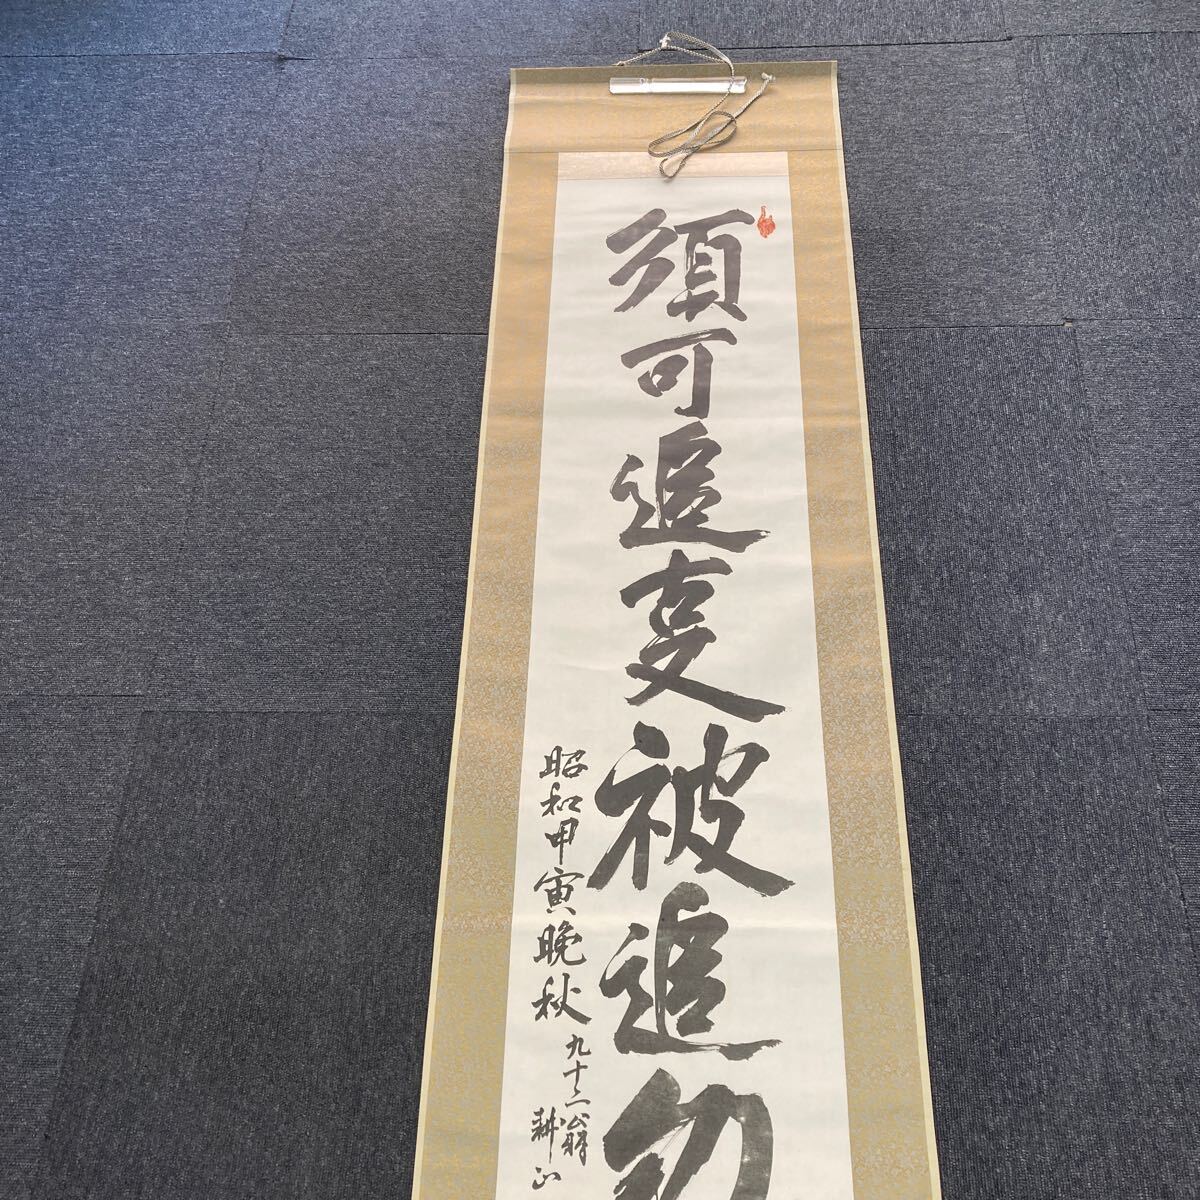 須可追叓被追勿
昭和甲寅晩秋 九十二翁 耕